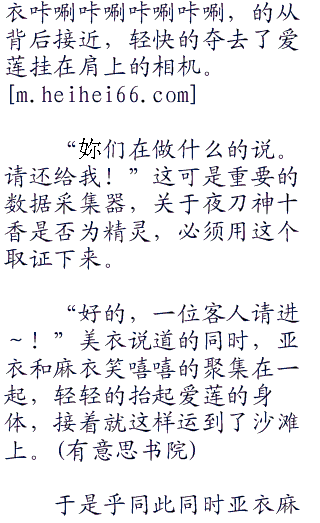 衣咔唰咔唰咔唰咔唰，的从
背后接近，轻快的夺去了爱
莲挂在肩上的相机。
[m.heihei66.com]
“妳们在做什么的说。
请还给我！”这可是重要的
数据采集器，关于夜刀神十
香是否为精灵，必须用这个
取证下来。
“好的，一位客人请进
～！”美衣说道的同时，亚
衣和麻衣笑嘻嘻的聚集在一
起，轻轻的抬起爱莲的身
体，接着就这样运到了沙滩
上。(有意思书院)
于是乎同此同时亚衣麻